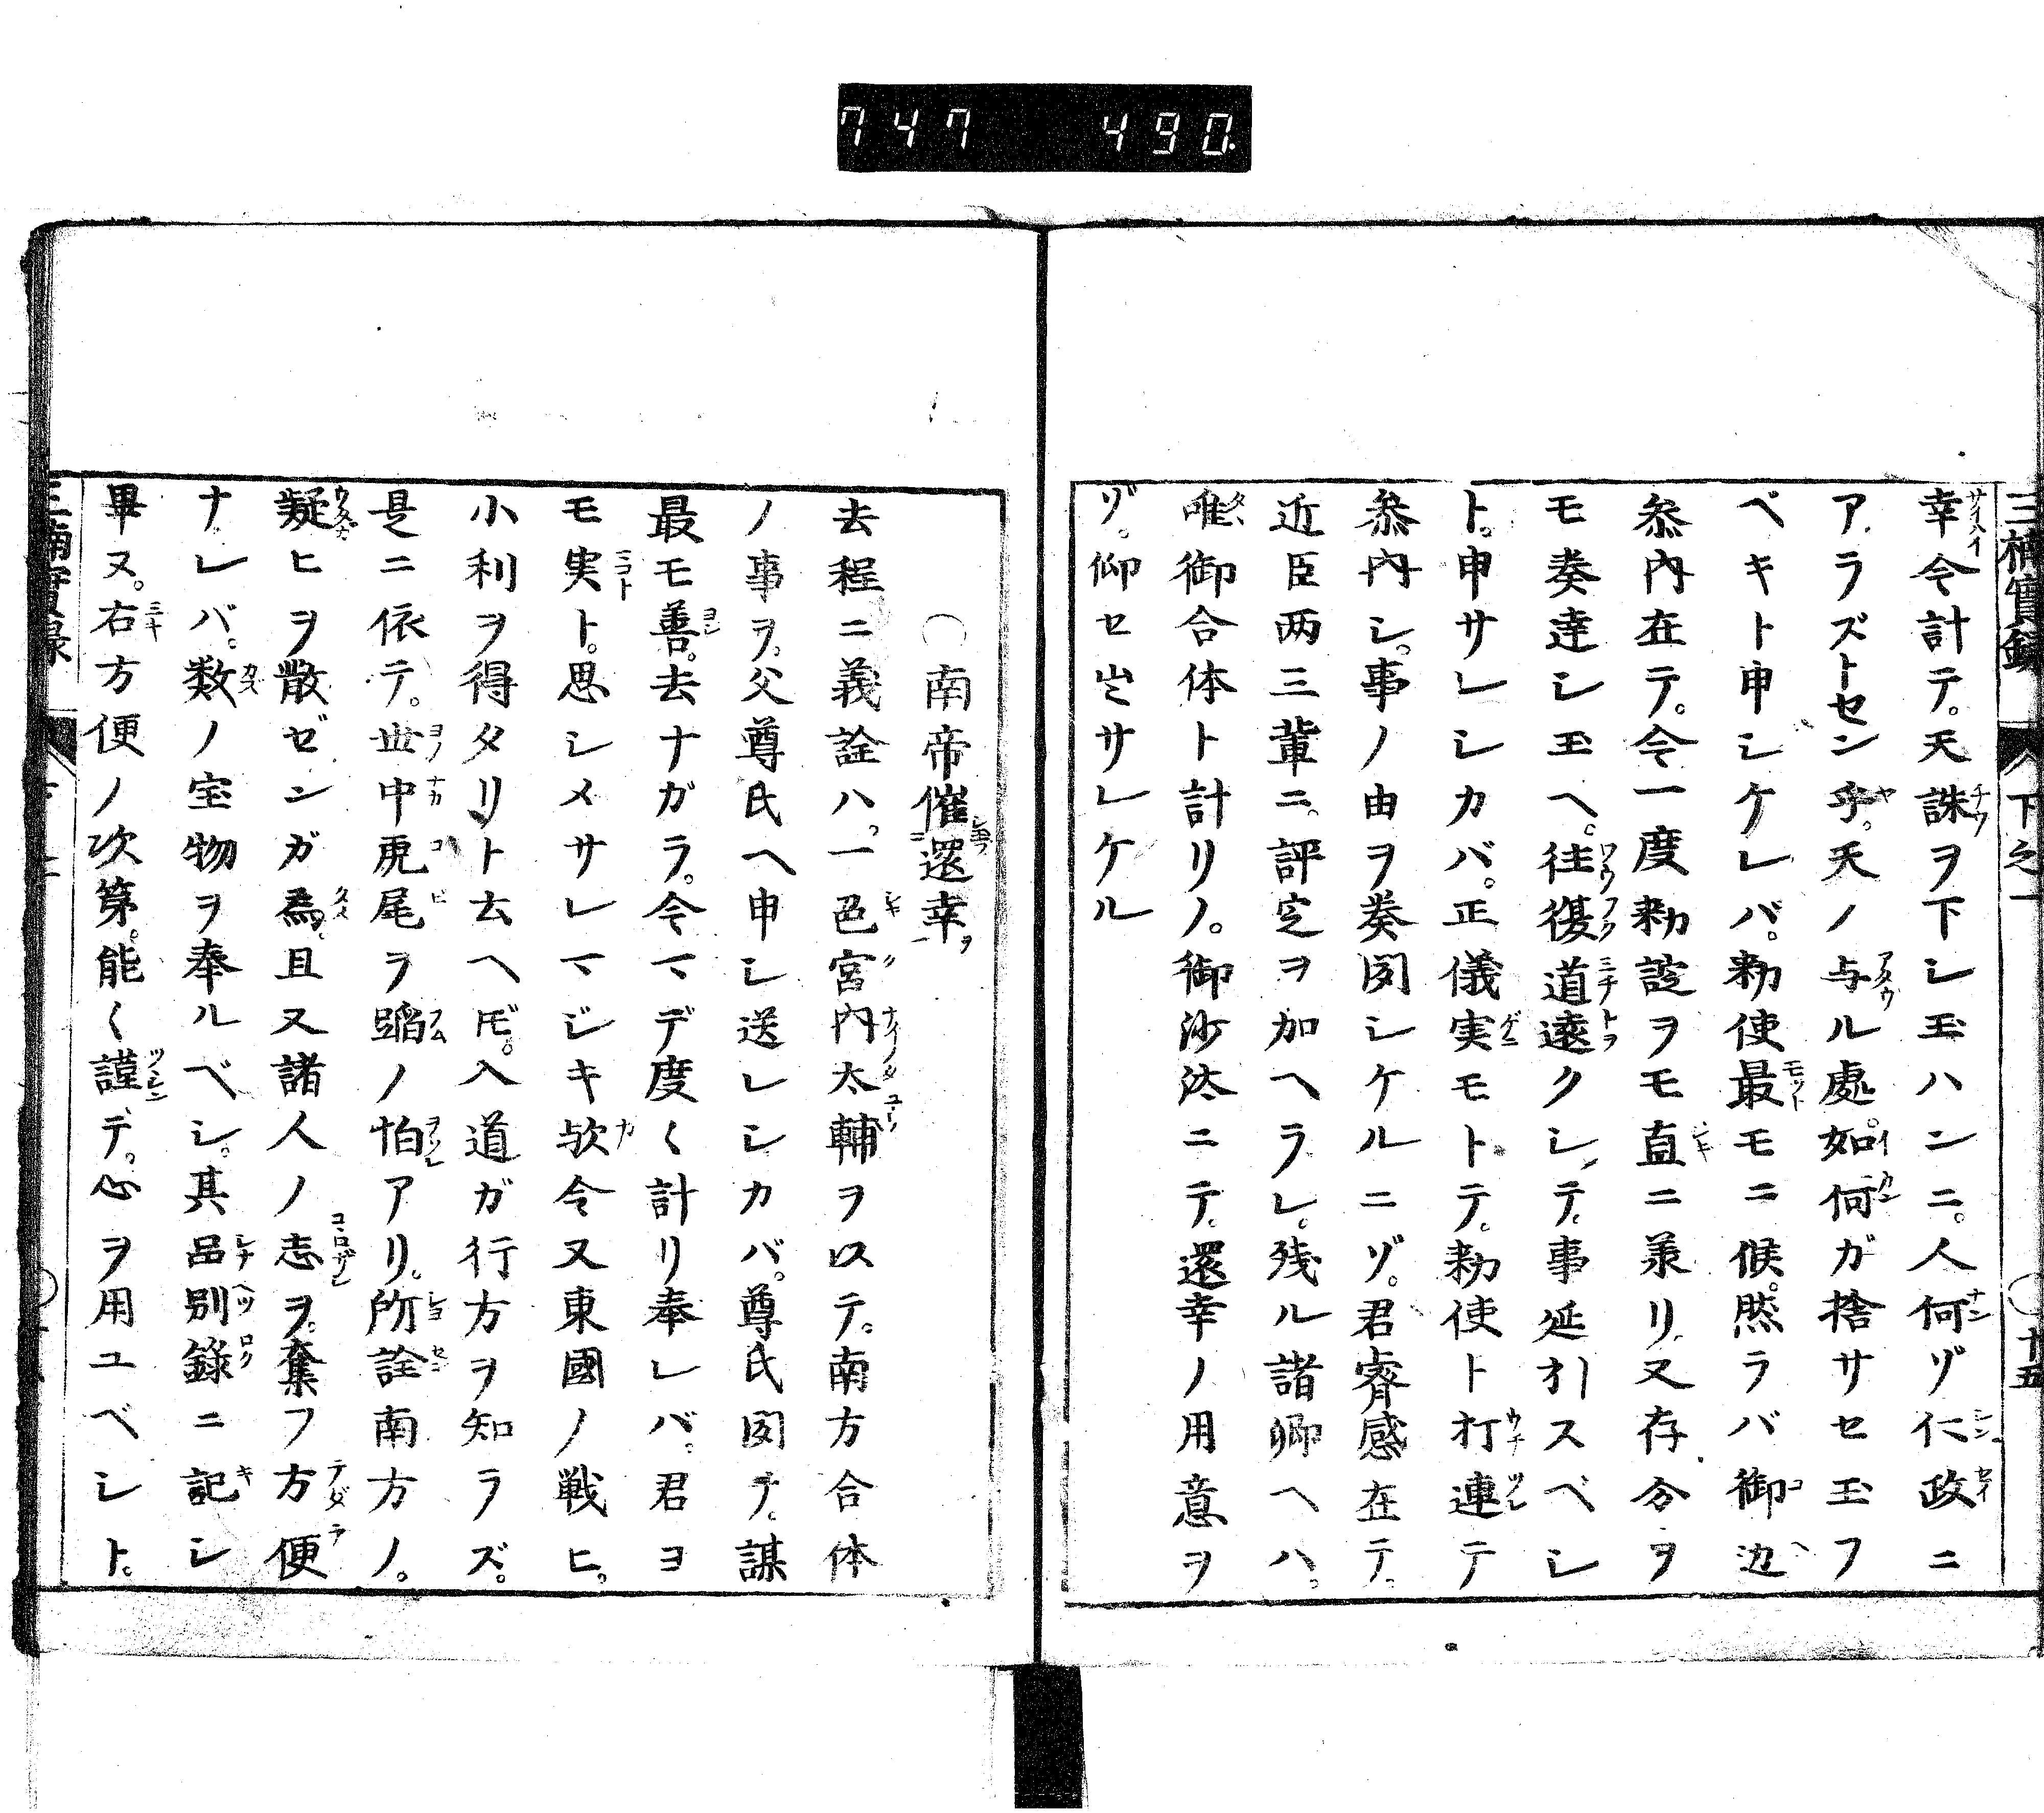 747 490.
三楠實録 下之一 十五
幸令計テ。天誅ヲ下シ玉ハンニ。人何ゾ仁政ニ
アラズトセン乎。天ノ与ル處。如何ガ捨サセ玉フ
ベキト申シケレバ。勅使最モニ候。然ラバ御辺
叅内在テ。今一度勅諚ヲモ直ニ羕リ又存分ヲ
モ奏達シ玉ヘ。往復道遠クシテ。事延引スベシ
ト。申サレシカバ。正儀実モトテ。勅使ト打連テ
叅内シ。事ノ由ヲ奏聞シケルニゾ。君睿感在テ。
近臣両三輩ニ。評定ヲ加ヘラレ。残ル諸卿ヘハ。
唯御合体ト計リノ。御沙汰ニテ。還幸ノ用意ヲ
ゾ。仰セ出サレケル
〇南帝催還幸
去程ニ義詮ハ。一色宮内太輔ヲ以テ。南方合体
ノ事ヲ。父尊氏ヘ申シ送レシカバ。尊氏聞テ。謀
最モ善。去ナガラ。今マデ度〱計リ奉レバ。君ヨ
モ実ト。思シメサレマジキ欤令又東國ノ戦ヒ。
小利ヲ得タリト云ヘ𪜈。入道ガ行方ヲ知ラズ。
是ニ依テ。世中虎尾ヲ蹈ノ怕アリ。所詮南方ノ。
疑ヒヲ散ゼンガ為。且又諸人ノ志ヲ。奪フ方便
ナレバ。数ノ宝物ヲ奉ルベシ。其品別錄ニ記シ
畢ヌ。右方便ノ次第。能〱謹デ。心ヲ用ユベシト。